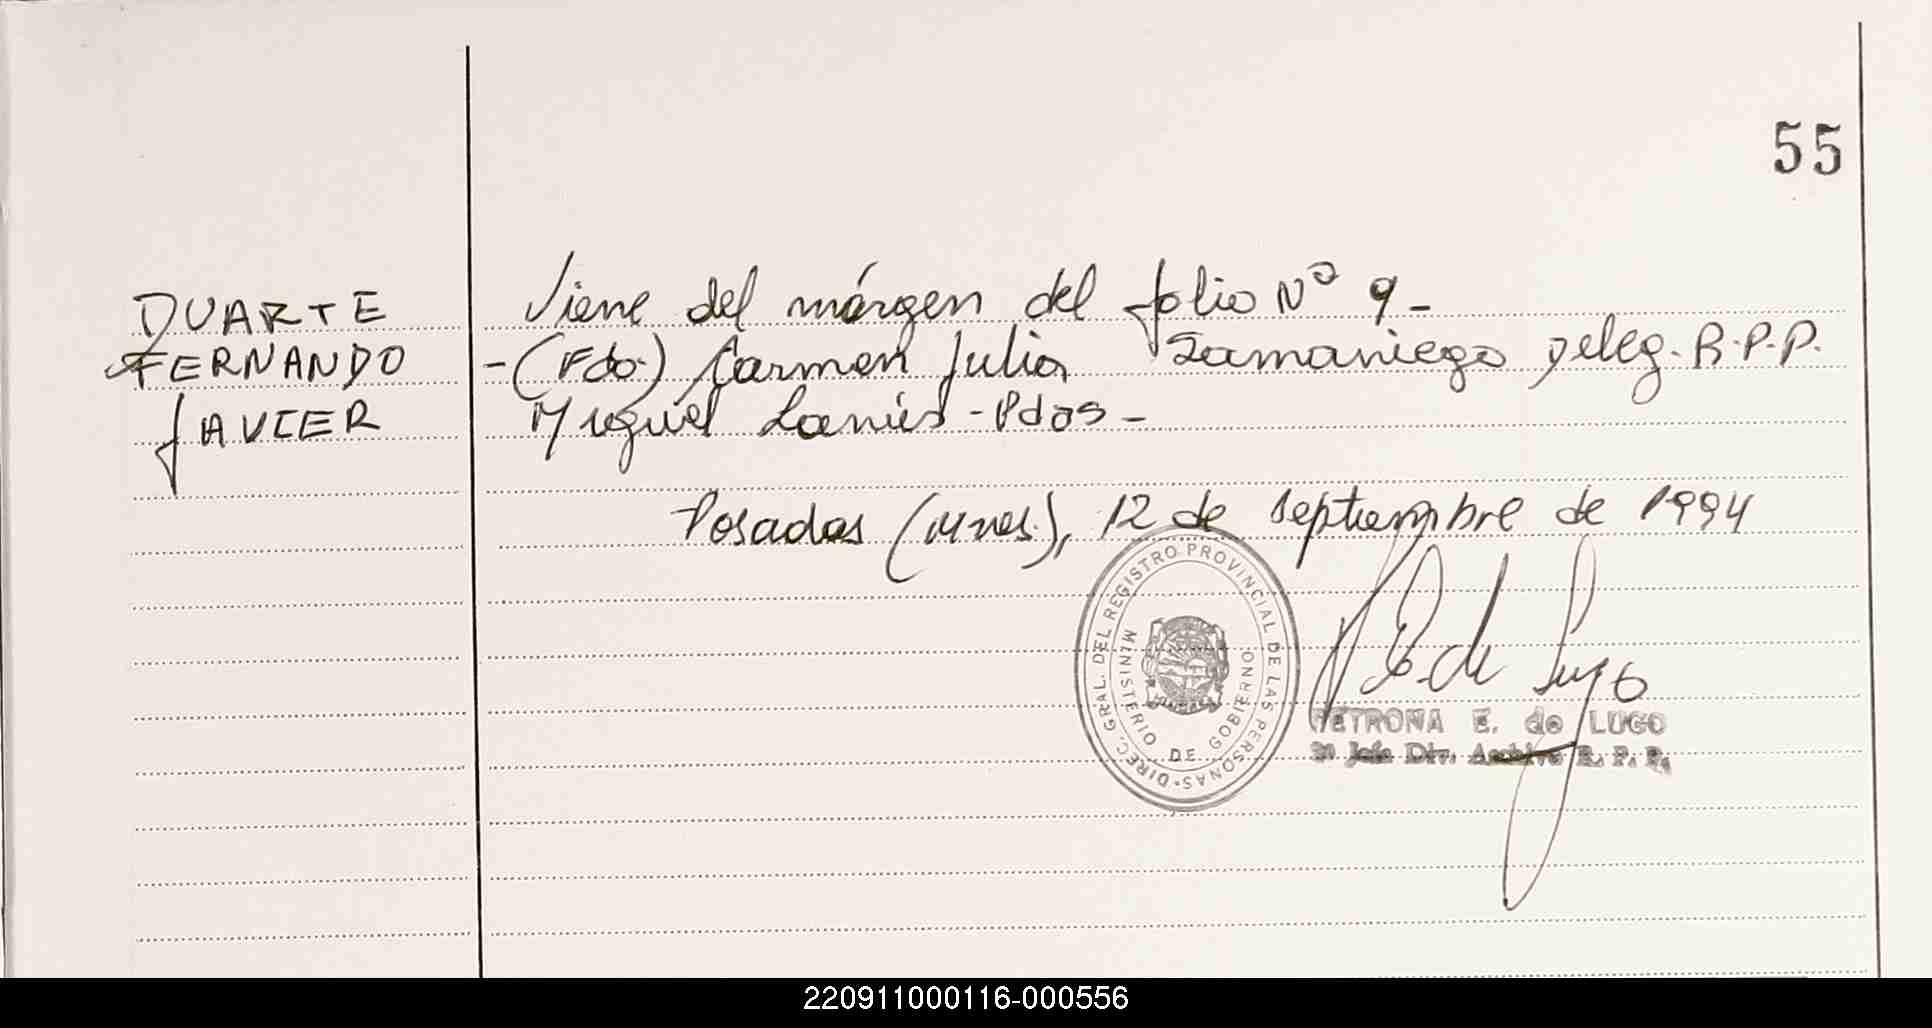 55
DUARTE
FERNANDO
JAVIER
Viene del márgen del folio Nº 9-
-(Fdo.) Carmen Julia Samaniego Deleg. R.P.P.
Miguel Lanús - Pdas -
Posadas (Mnes.), 12 de septiembre de 1994
DIREC. GRAL. DEL REGISTRO PROVINCIAL DE LAS PERSONAS
MINISTERIO DE GOBIERNO
P. E. de Lugo
PETRONA E. de LUGO
Jefe Div. Archivo R. P. P.
220911000116-000556